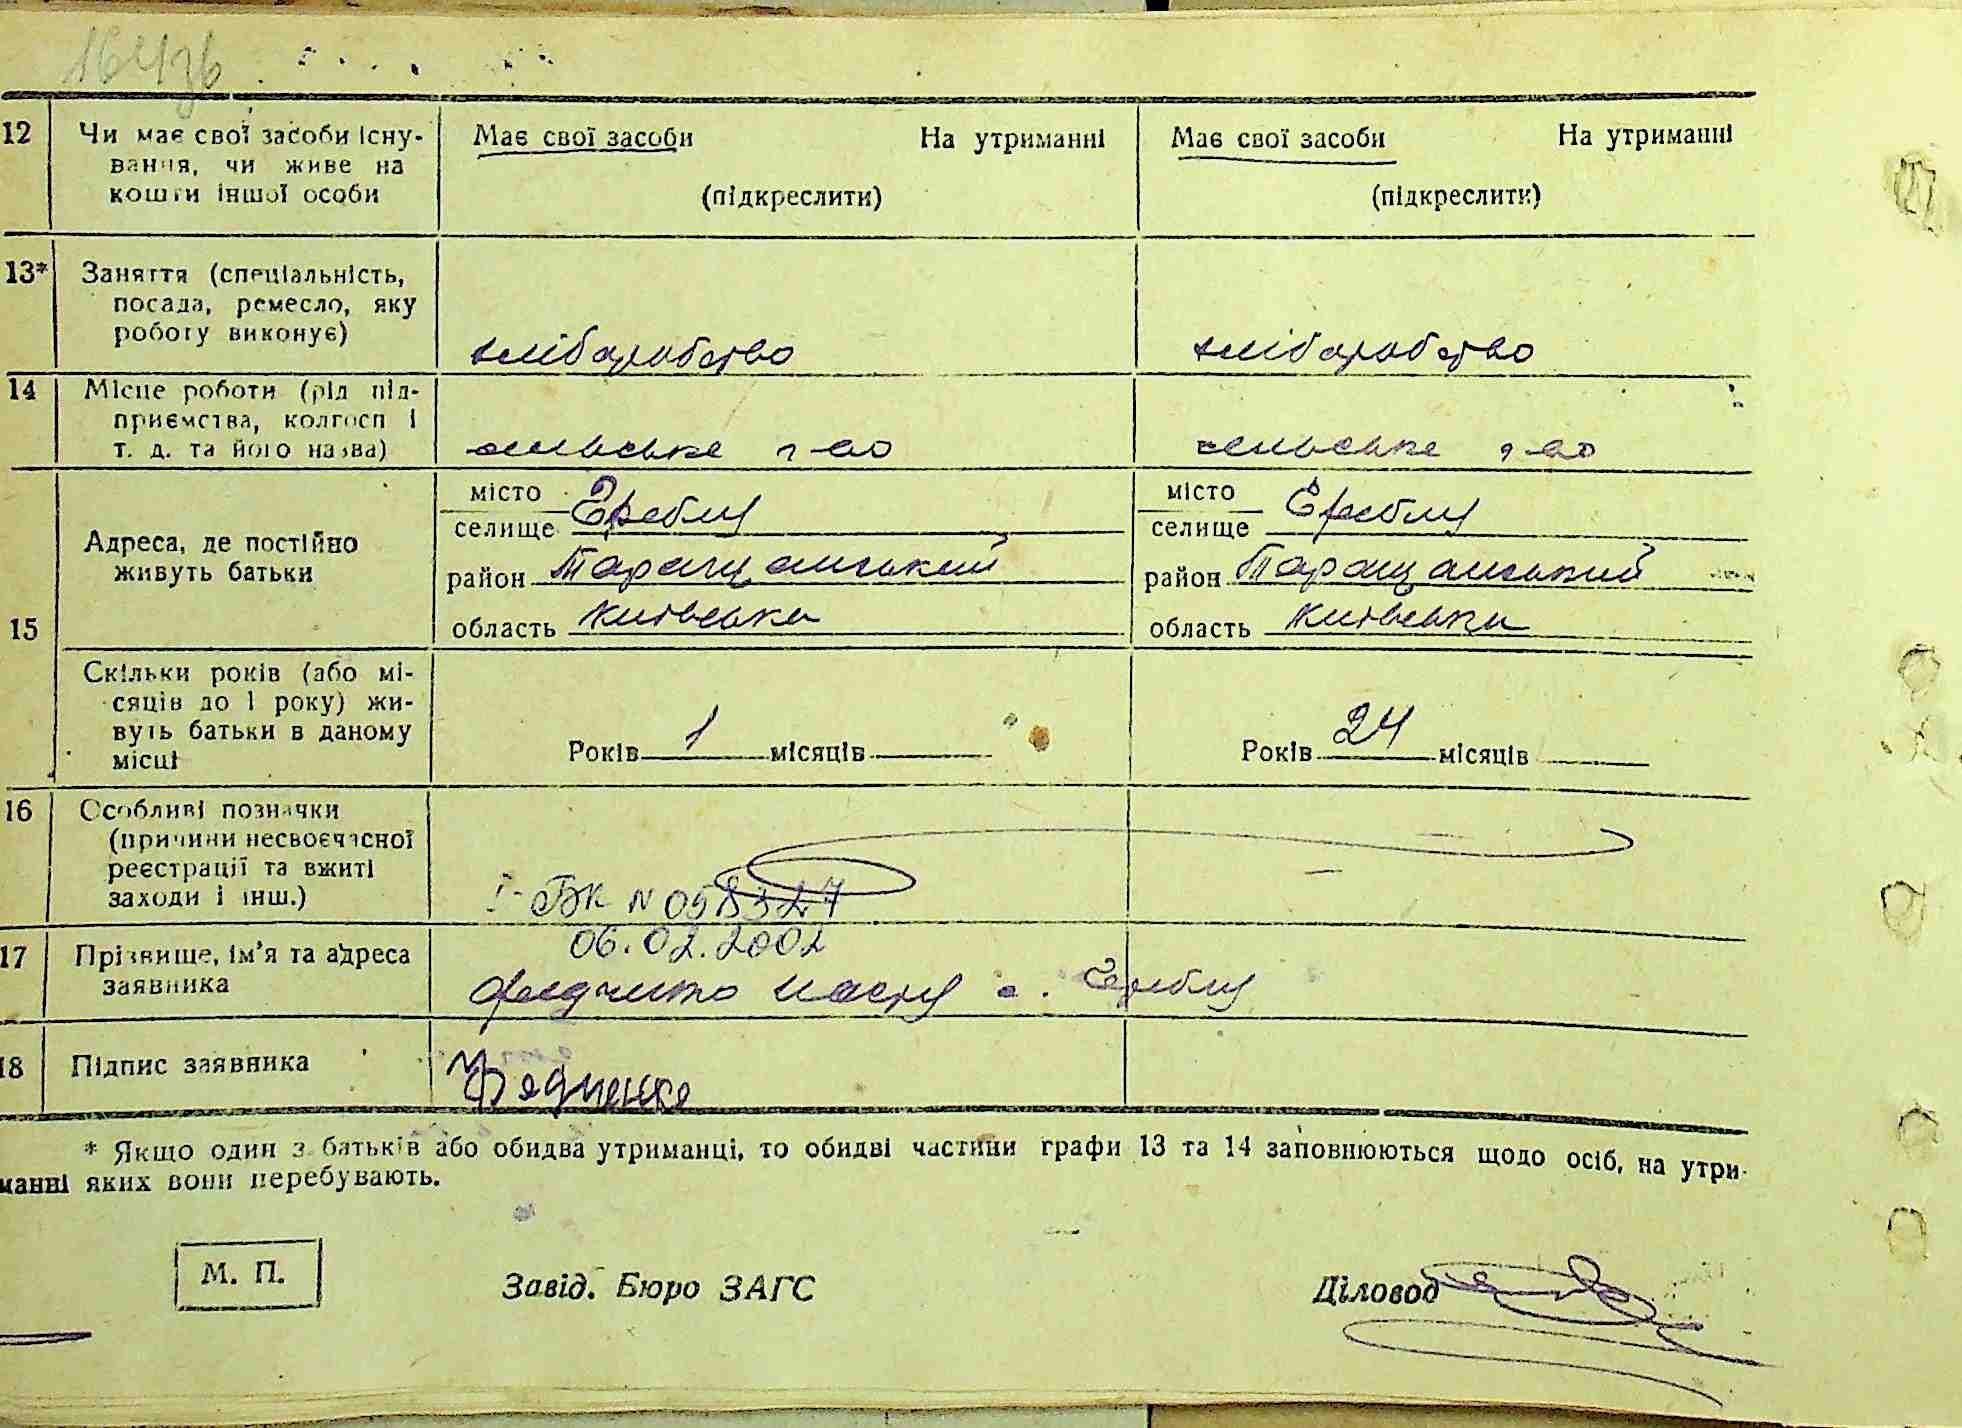 12
Чи має свої засоби існу-
вання, чи живе на
кошти іншої особи
Має свої засоби На утриманні
(підкреслити)
Має свої засоби На утриманні
(підкреслити)
13*
Заняття (спеціальність,
посада, ремесло, яку
роботу виконує)
хліборобство
хліборобство
14
Місце роботи (рід під-
приємства, колгосп і
т. д. та його назва)
сельське г-во
сельське г-во
15
Адреса, де постійно
живуть батьки
місто
селище Греблу
район Таращанський
область Київська
місто
селище Греблу
район Таращанський
область Київська
Скільки років (або мі-
сяців до 1 року) жи-
вуть батьки в даному
місці
Років 1 місяців
Років 24 місяців
16
Особливі позначки
(причини несвоєчасної
реєстрації та вжиті
заходи і інш.)
І-БК N 058327
06.02.2002
17
Прізвише, ім'я та адреса
заявника
с. Греблу
18
Підпис заявника
* Якщо один з батьків або обидва утриманці, то обидві частини графи 13 та 14 заповнюються щодо осіб, на утри-
манні яких вони перебувають.
М. П.
Завід. Бюро ЗАГС
Діловод